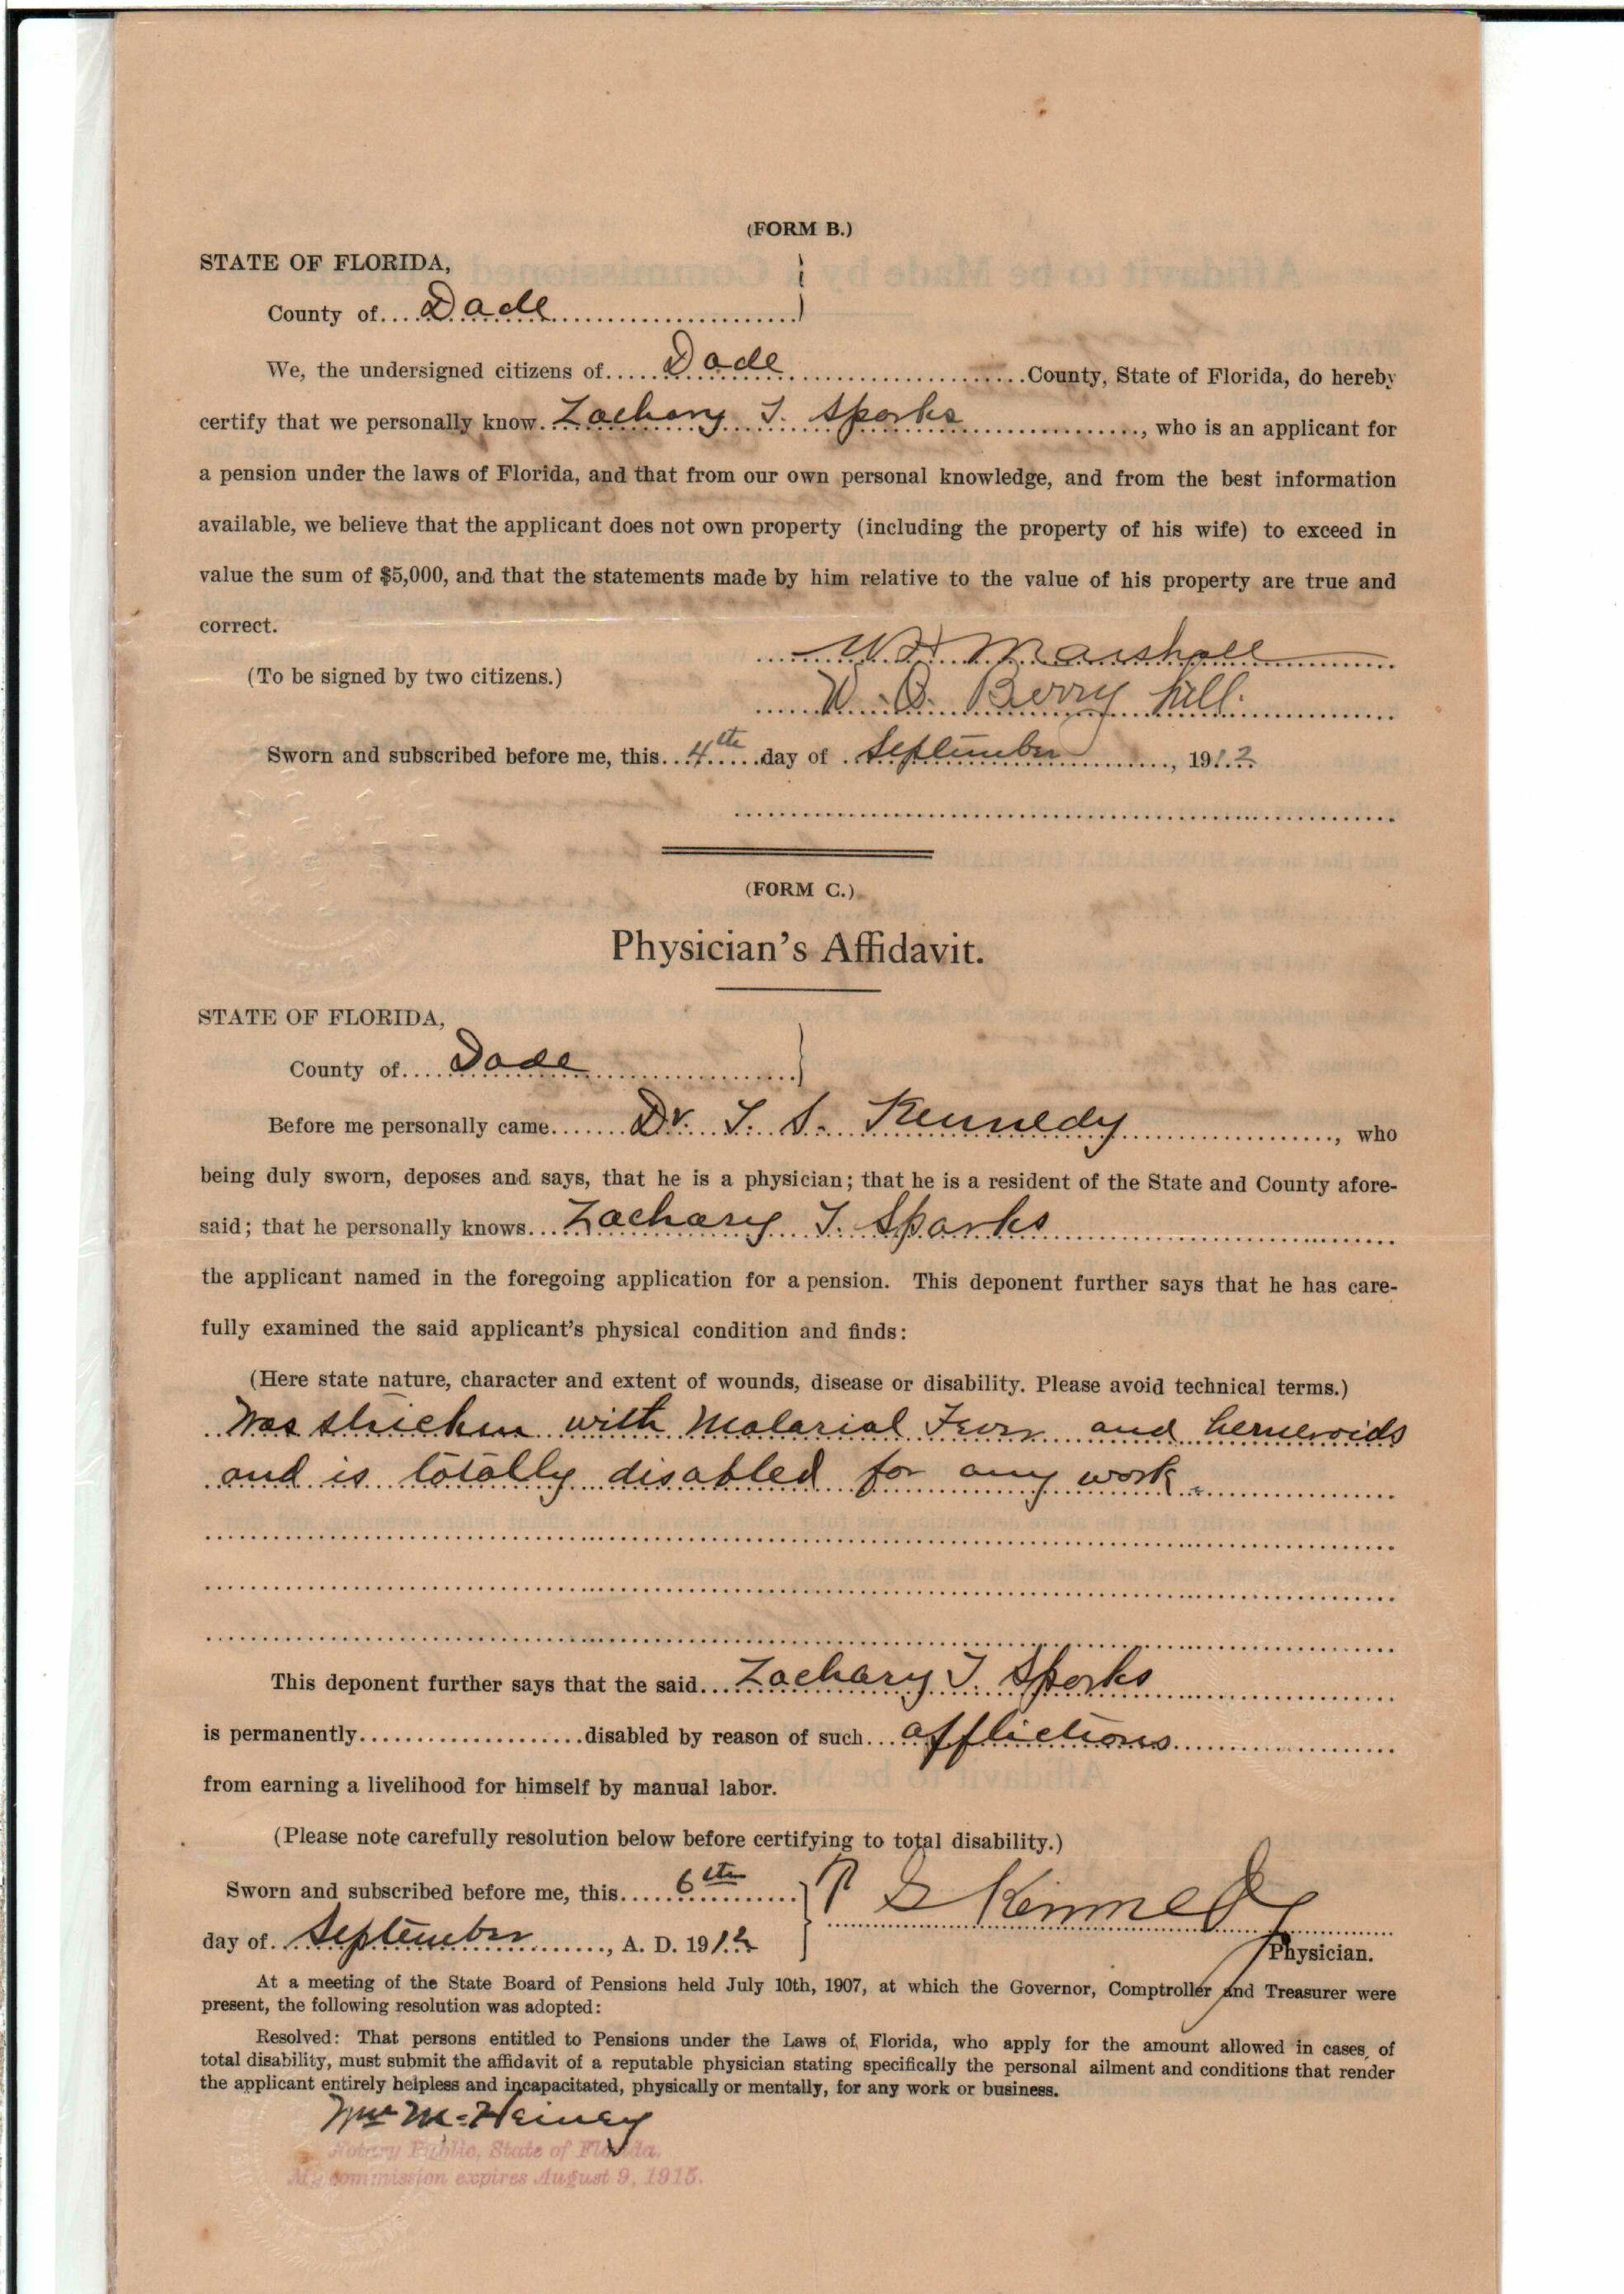 (FORM B.)
STATE OF FLORIDA,
County of....Dade
We, the undersigned citizens of.....Dade.....County, State of Florida, do hereby
certify that we personally know. Zachary T. Sparks ....., who is an applicant for
a pension under the laws of Florida, and that from our own personal knowledge, and from the best information
available, we believe that the applicant does not own property (including the property of his wife) to exceed in
value the sum of $5,000, and that the statements made by him relative to the value of his property are true and
correct.
W H Marshall
(To be signed by two citizens.)
W. O. Berry hill.
Sworn and subscribed before me, this...4th.....day of . September ....., 1912
(FORM C.)
Physician's Affidavit.
STATE OF FLORIDA,
County of....Dade
Before me personally came.......Dr. T. S. Kennedy ....., who
being duly sworn, deposes and says, that he is a physician; that he is a resident of the State and County afore-
said; that he personally knows...Zachary T. Sparks
the applicant named in the foregoing application for a pension. This deponent further says that he has care-
fully examined the said applicant's physical condition and finds:
(Here state nature, character and extent of wounds, disease or disability. Please avoid technical terms.)
Was stricken with Malarial Fever and hemeroids
and is totally disabled for any work.
This deponent further says that the said...Zachary T. Sparks
is permanently.....disabled by reason of such...afflictions
from earning a livelihood for himself by manual labor.
(Please note carefully resolution below before certifying to total disability.)
Sworn and subscribed before me, this.....6th
T S Kennedy
day of. September ....., A. D. 1912
Physician.
At a meeting of the State Board of Pensions held July 10th, 1907, at which the Governor, Comptroller and Treasurer were
present, the following resolution was adopted:
Resolved: That persons entitled to Pensions under the Laws of Florida, who apply for the amount allowed in cases of
total disability, must submit the affidavit of a reputable physician stating specifically the personal ailment and conditions that render
the applicant entirely helpless and incapacitated, physically or mentally, for any work or business.
Wm M. Heiney
Notary Public, State of Florida.
My commission expires August 9, 1915.